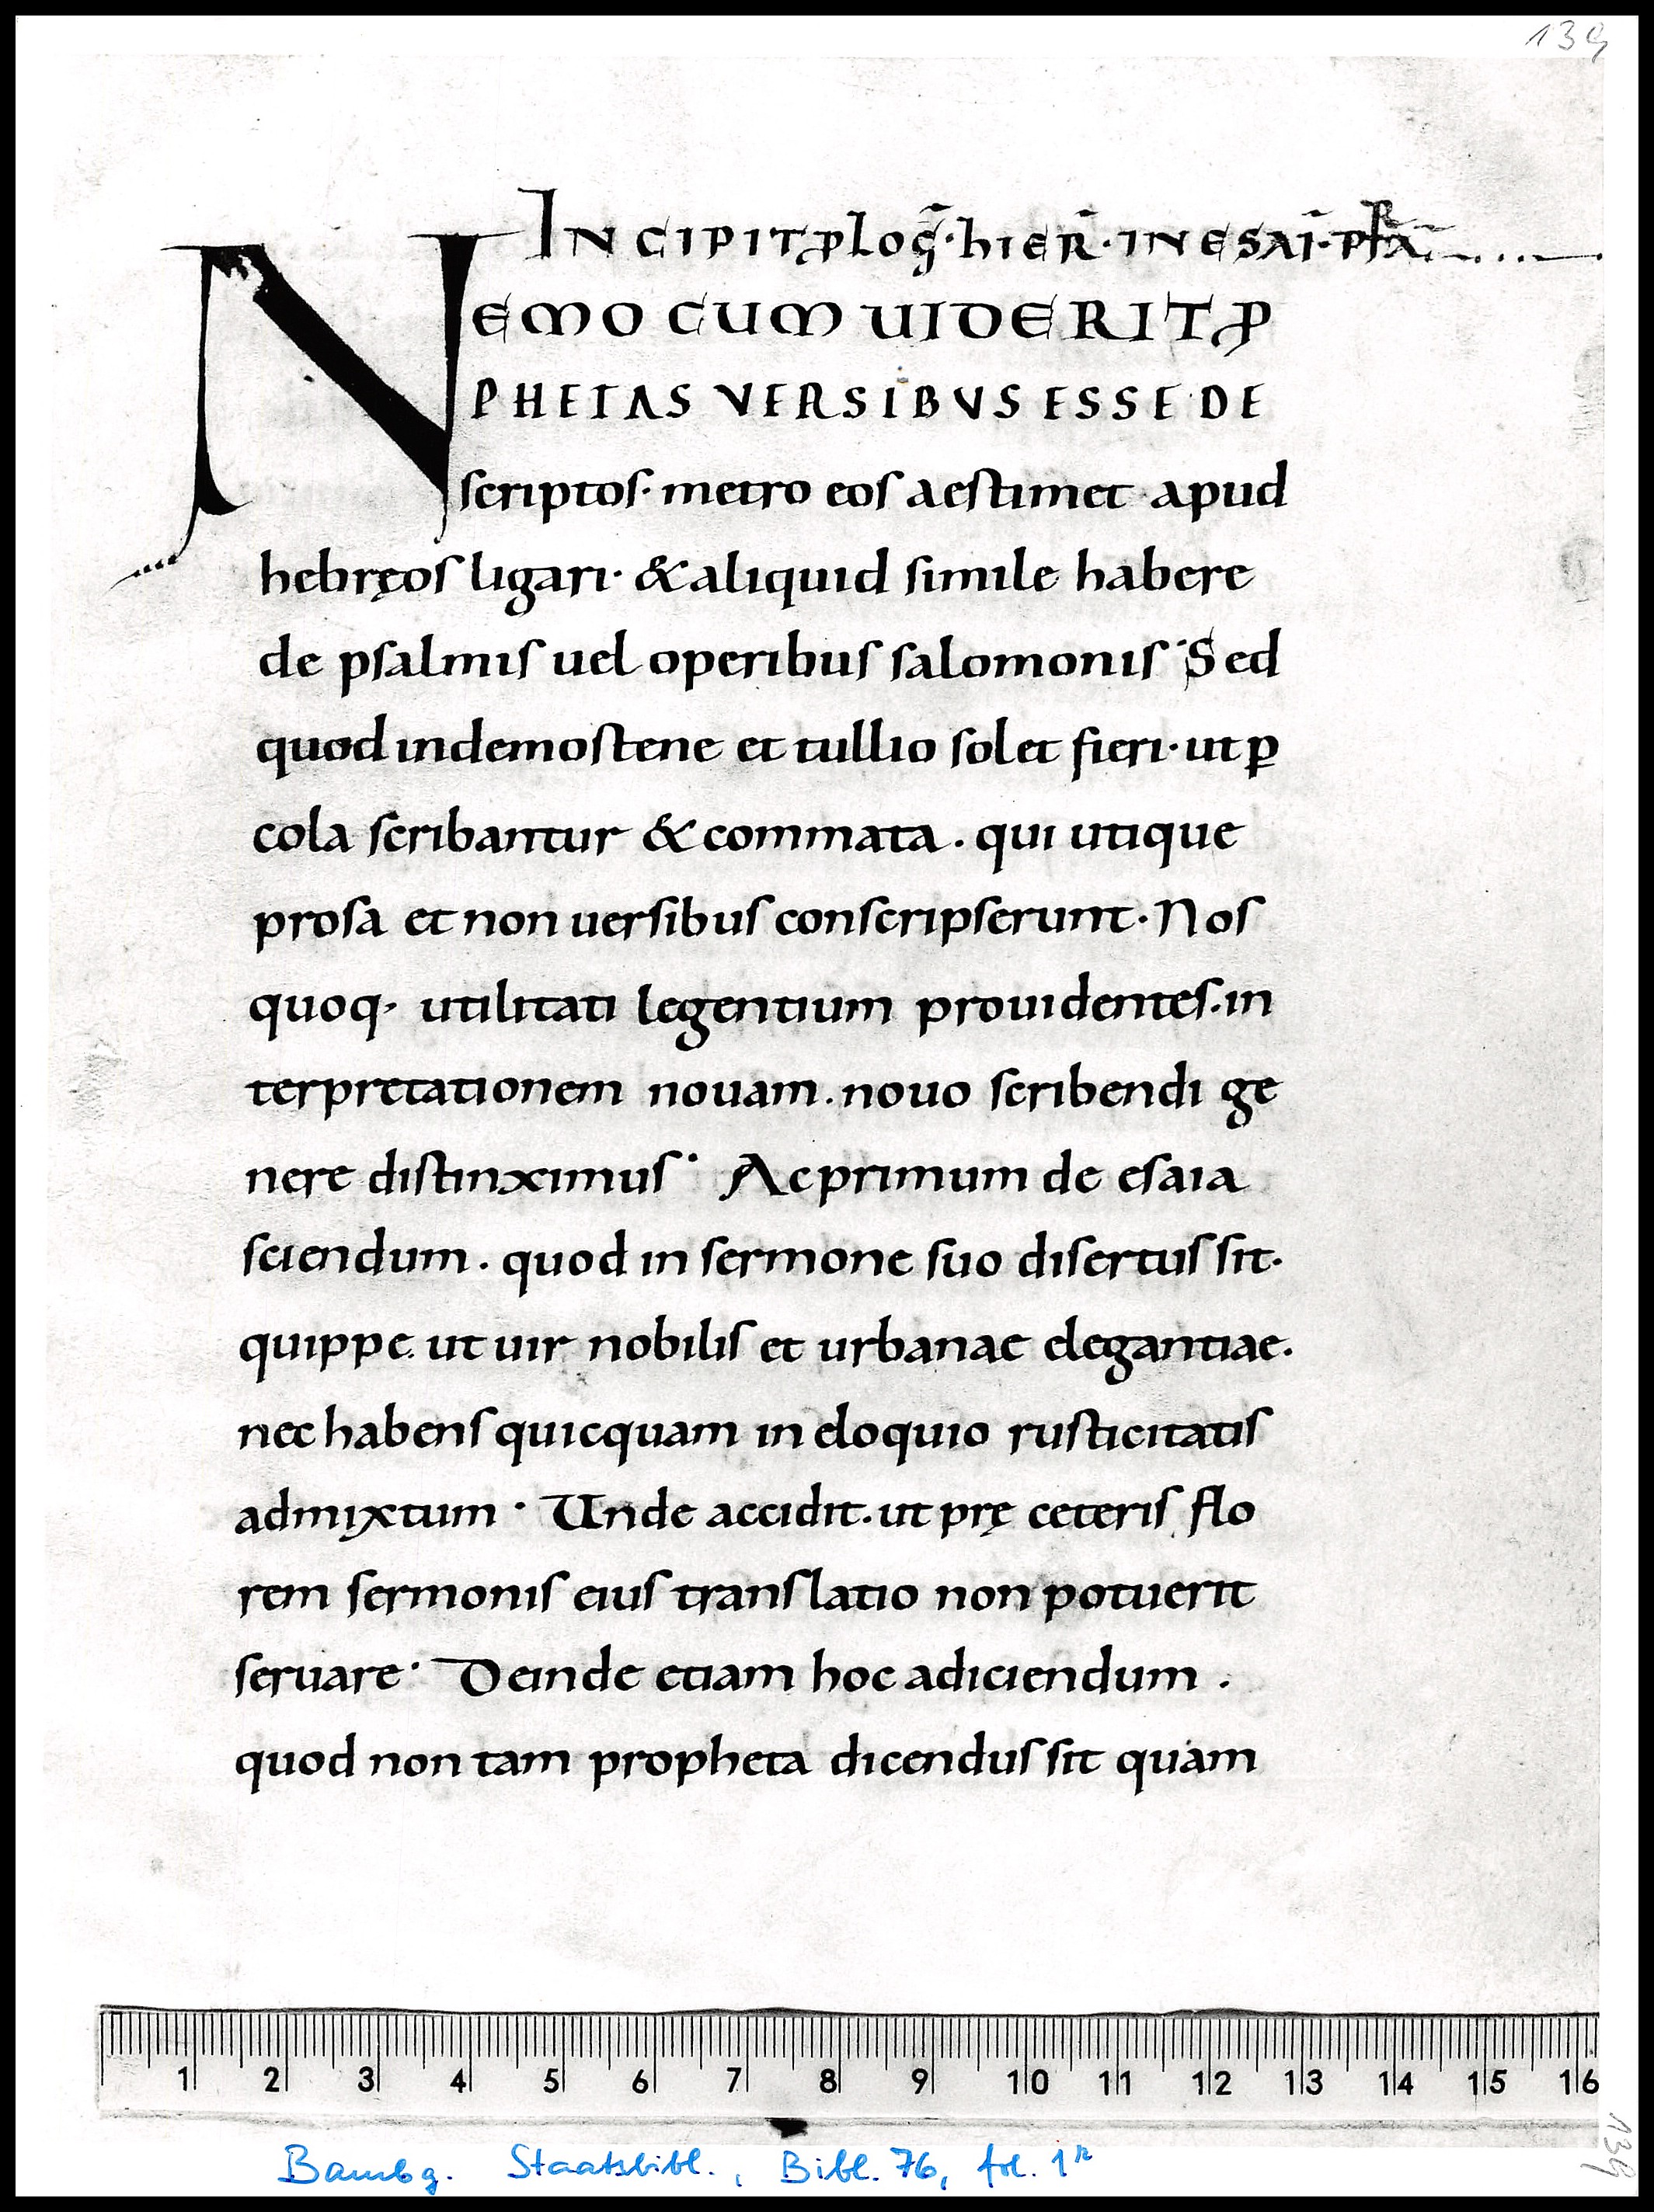 139
INCIPIT ꝓLOG̃·hIER̃·IN ESAĨ·PꝶA̅
NEMO CUM UIDERIT ꝓ
PHETAS VERSIBVS ESSE DE
scriptos· metro eos aestimet apud
hebręos ligari· & aliquid simile habere
de psalmis uel operibus salomonis· Sed
quod in demostene et tullio solet fieri· ut ꝑ
cola scribantur & commata. qui utique
prosa et non uersibus conscripserunt· Nos
quoq· utilitati legentium prouidentes. in
terpretationem nouam. nouo scribendi ge
nere distinximus· Ac primum de esaia
sciendum. quod in sermone suo disertus sit·
quippe ut uir nobilis et urbanae elegantiae.
nec habens quicquam in eloquio rusticitatis
admixtum· Unde accidit. ut prę ceteris flo
rem sermonis eius translatio non potuerit
seruare· Deinde etiam hoc adiciendum.
quod non tam propheta dicendus sit quam
1 2 3 4 5 6 7 8 9 10 11 12 13 14 15 16
Bambg. Staatsbibl., Bibl. 76, fol. 1r
139